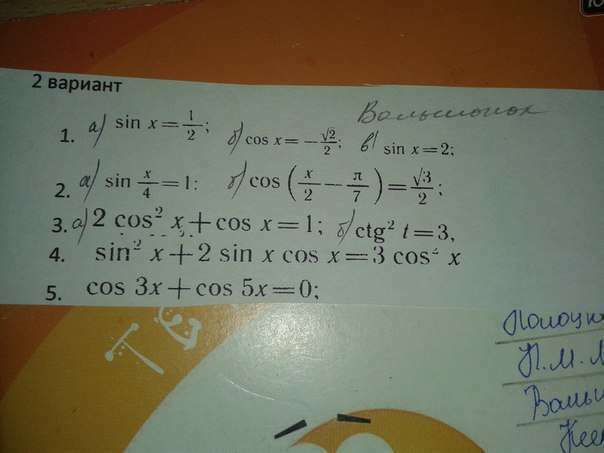 10
2 вариант
Вальшонок
1. а) sin x = 1/2; б) cos x = -√2/2; в) sin x = 2;
2. а) sin x/4 = 1: б) cos (x/2 - π/7) = √3/2;
3. а) 2 cos² x + cos x = 1; б) ctg² t = 3,
4. sin² x + 2 sin x cos x = 3 cos² x
5. cos 3x + cos 5x = 0;
П.М.